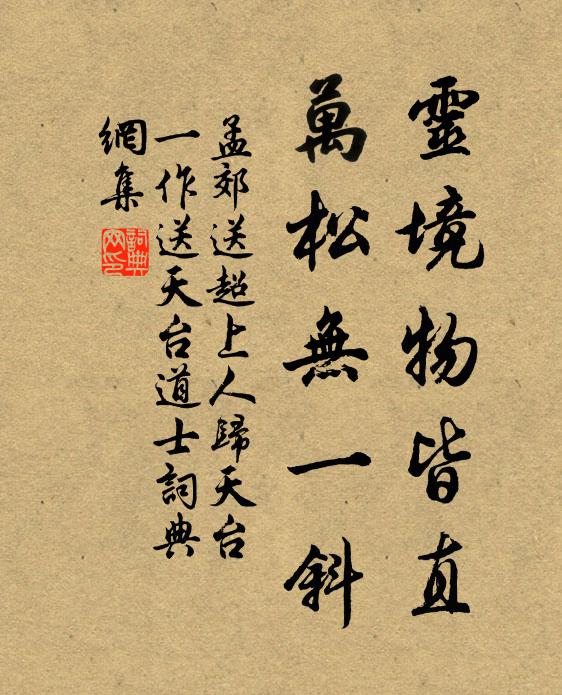 靈境物皆直
萬松無一斜
孟郊送超上人歸天台
一作送天台道士詞典
網集
詞典
网印